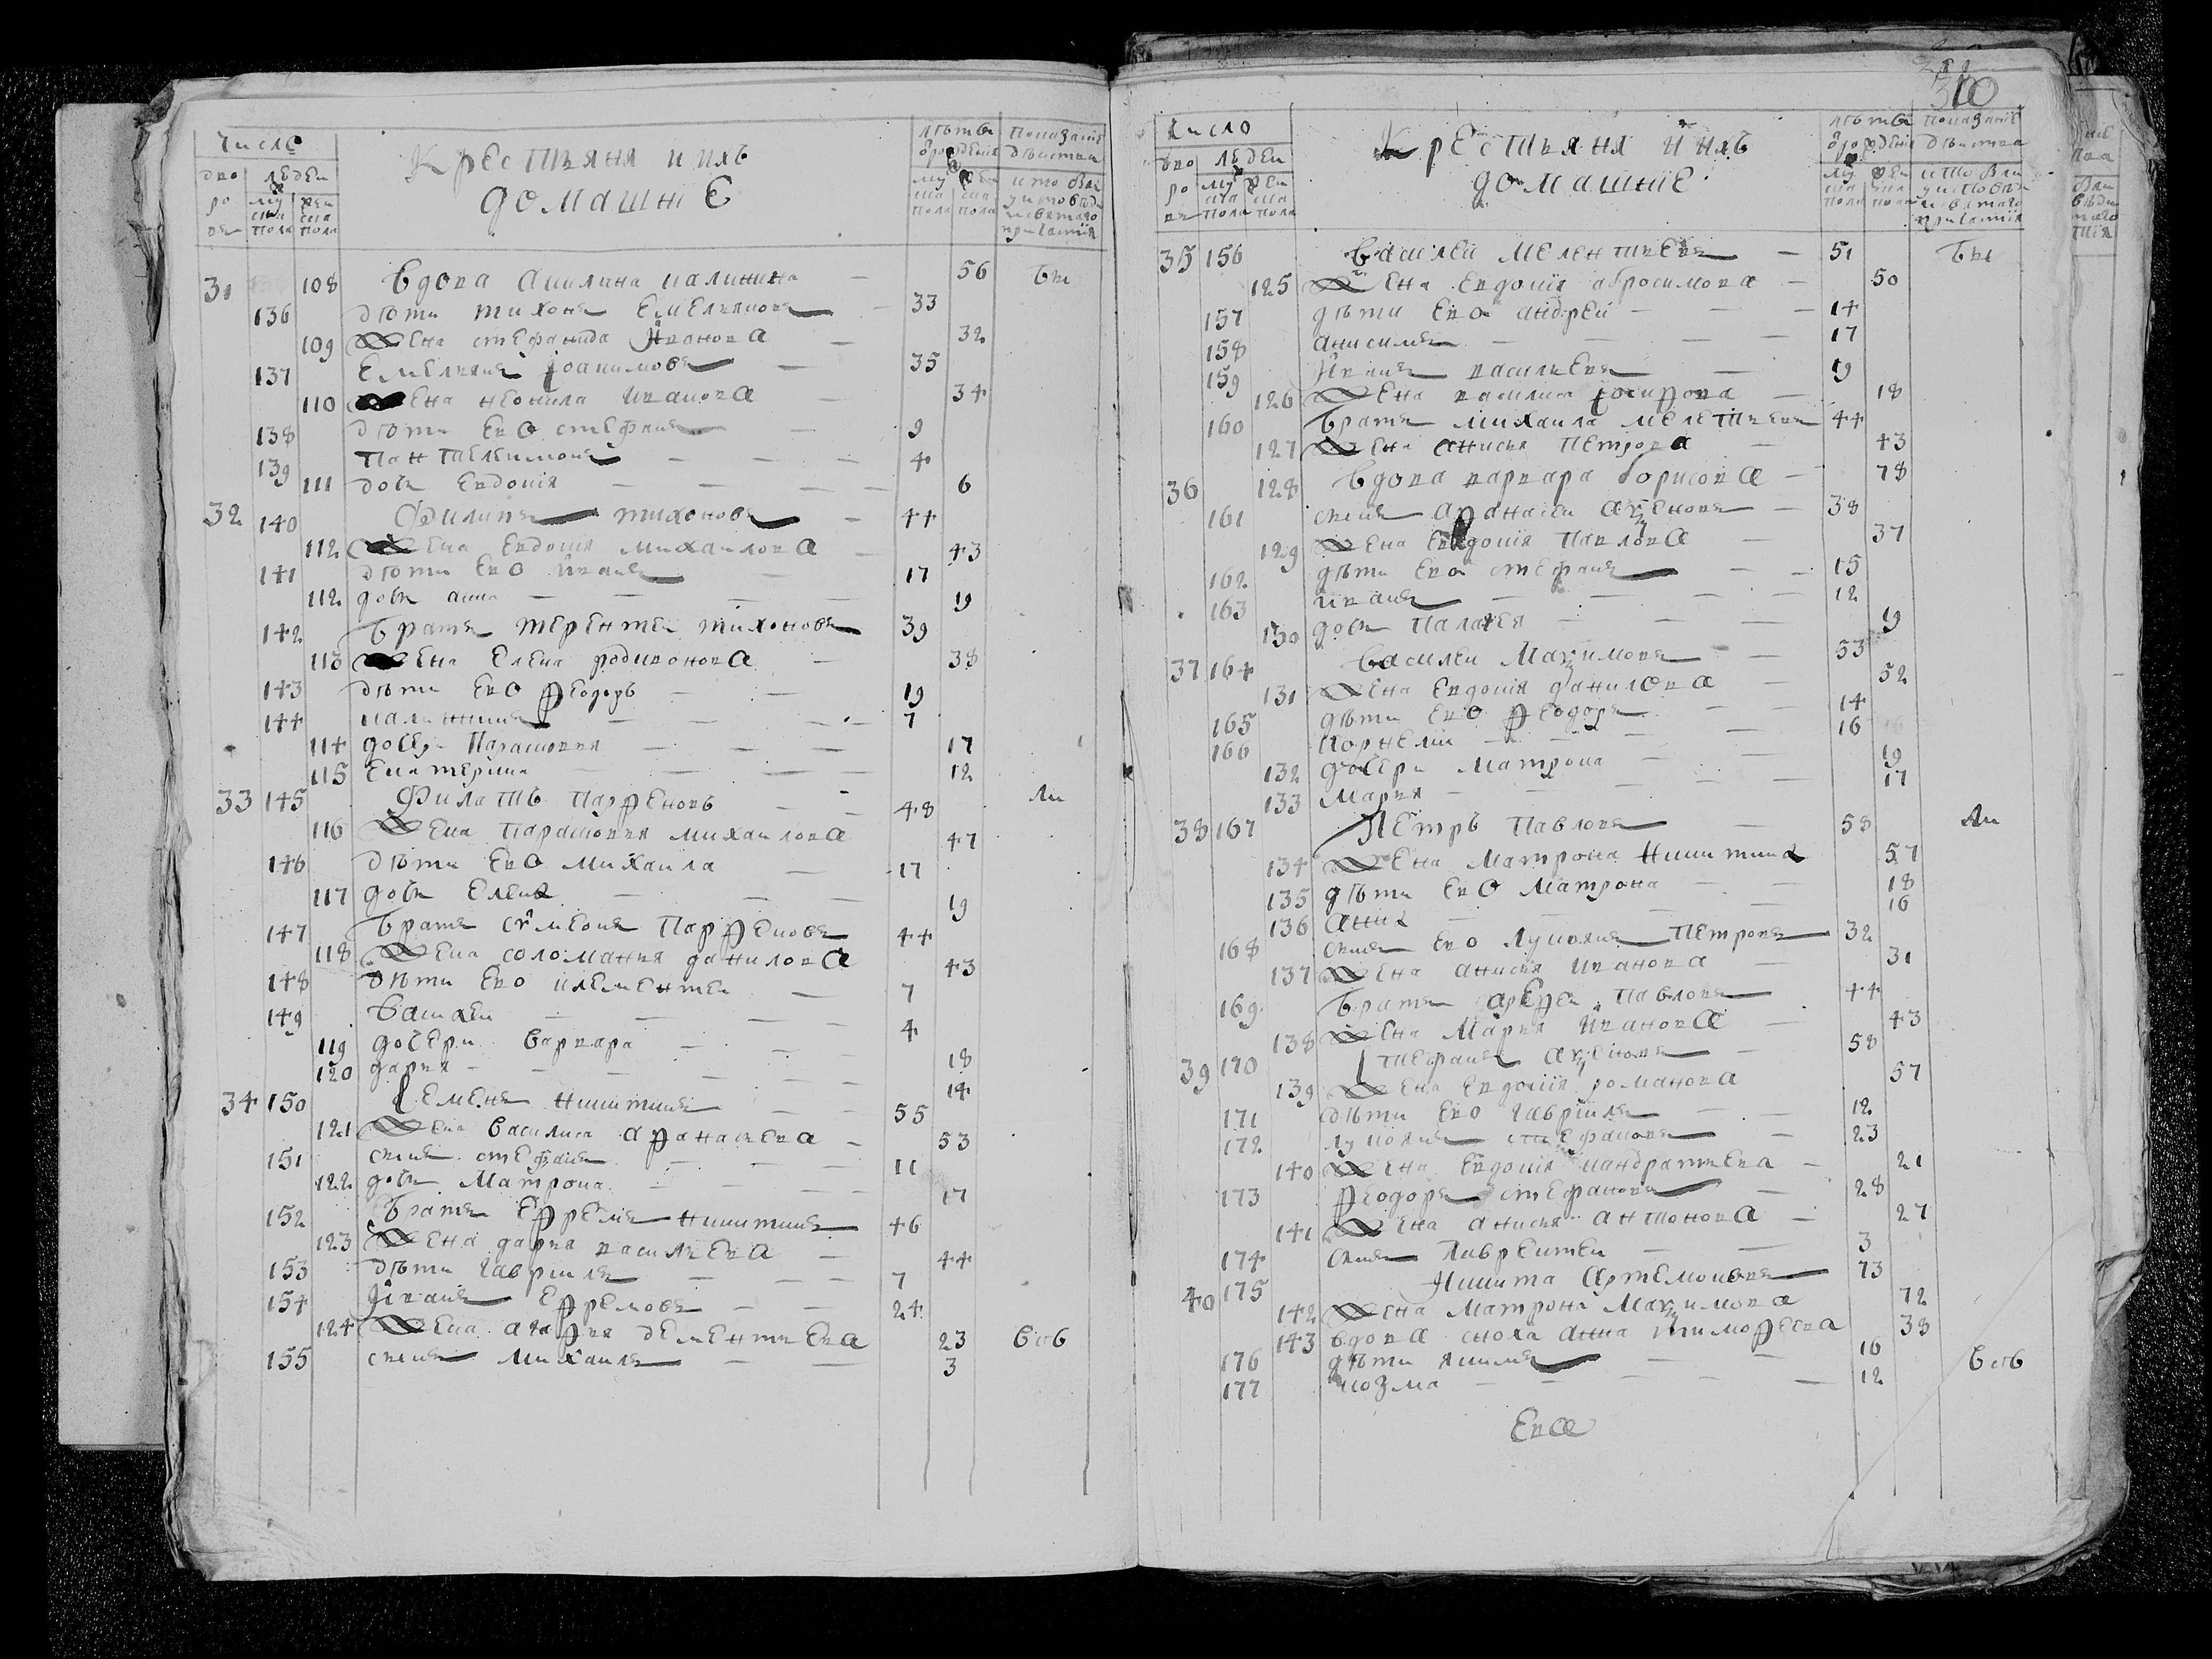 Число
дворовъ
людеи
мужеска пола
женска пола
Крестьяня и ихъ домашнiе
лѣтъ от рожденiя
мужеска пола
женска пола
Показанiе дѣиства
кто былъ у исповѣди и святаго причастiя
31 108 вдова Акилина калинина — 56 бы
136 дѣти тихонъ Емельяновъ — 33
109 жена стефанида Иванова — 32
137 Емельянъ Iоакимовъ — 35
110 жена неонила Иванова — 34
138 дѣти Ево стефанъ — 9
139 Пантелеимонъ — — — 4
111 дочь Евдокiя — — — 6
32 140 Филипъ тихоновъ — 44
112 жена Евдокiя михаилова — 43
141 дѣти Ево Иванъ — 17
112 дочь анна — — — 19
142 братъ терентеи тихоновъ 39
113 жена Елена родивонова — 38
143 дѣти Ево Ѳеодоръ — — 19
144 калинникъ — — — 7
114 дочери Парасковья — — — 17
115 Екатерина — — — 12
33 145 Филатъ Парѳеновъ — — 48 ли
116 жена Парасковья михаилова 47
146 дѣти Ево михаила — 17
117 дочь Елена — — — 19
147 братъ сѵмеонъ Парѳеновъ 44
118 жена соломания данилова 43
148 дѣти Ево клементеи — 7
149 василеи — — — 4
119 дочери варвара — — — 18
120 дарья — — — — 14
34 150 Семенъ никитинъ — — 55
121 жена василиса аѳанасьева — 53
151 сынъ стефанъ — — — 11
122 дочь матрона — — — 17
152 братъ Еѳремъ никитинъ 46
123 жена дарья васильева — 44
153 дѣти гаврилъ — — — 7
154 Иванъ Еѳремовъ — — 24
124 жена агаѳья дементьева 23 всѣ
155 сынъ михаилъ — — 3
310
Число
дворовъ
людеи
мужеска пола
женска пола
Крестьяня и ихъ домашнiе
лѣтъ от рожденiя
мужеска пола
женска пола
Показанiе дѣиства
кто былъ у исповѣди и святаго причастiя
35 156 василеи мелентьевъ — 51 бы
125 жена Евдокiя абросимова — 50
157 дѣти Ево андреи — — — 14
158 анисимъ — — — — 17
159 Иванъ васильевъ — 19
126 жена василиса Iосиѳова — 18
160 братъ михаила мелетьевъ 44
127 жена анисья Петрова — 43
36 128 вдова варвара борисова — 78
161 сынъ аѳанасеи аѯеновъ — 38
129 жена Евдокiя Павлова — 37
162 дѣти Ево стефанъ — — 15
163 иванъ — — — — 12
130 дочь Палагея — — — 19
37 164 василеи маѯимовъ — 53
131 жена Евдокiя данилова — 52
165 дѣти Ево Ѳеодоръ — — 14
166 корнелiи — — — — 16
132 дочери матрона — — 19
133 марья — — — — 17
38 167 Петръ Павловъ — 58 ли
134 жена матрона никитина 57
135 дѣти Ево матрона — — 18
136 анна — — — — 16
168 сынъ Ево лукьянъ Петровъ 32
137 жена анисья Иванова — 31
169 братъ ареѳеи Павловъ 44
138 жена марья Иванова — 43
39 170 Стефанъ аѯеновъ — 58
139 жена Евдокiя романова 57
171 дѣти Ево гаврiилъ — — 12
172 лукьянъ стефановъ — 23
140 жена Евдокiя кандратьева — 21
173 Ѳеодоръ стефановъ — 28
141 жена анисья антонова — 27
174 сынъ Лаврентеи — — 3
40 175 Никита артемоновъ 73
142 жена матрона маѯимова 72
143 вдова сноха анна тимоѳеева 38
176 дѣти якимъ — — 16 всѣ
177 козма — — — — 12
Ева